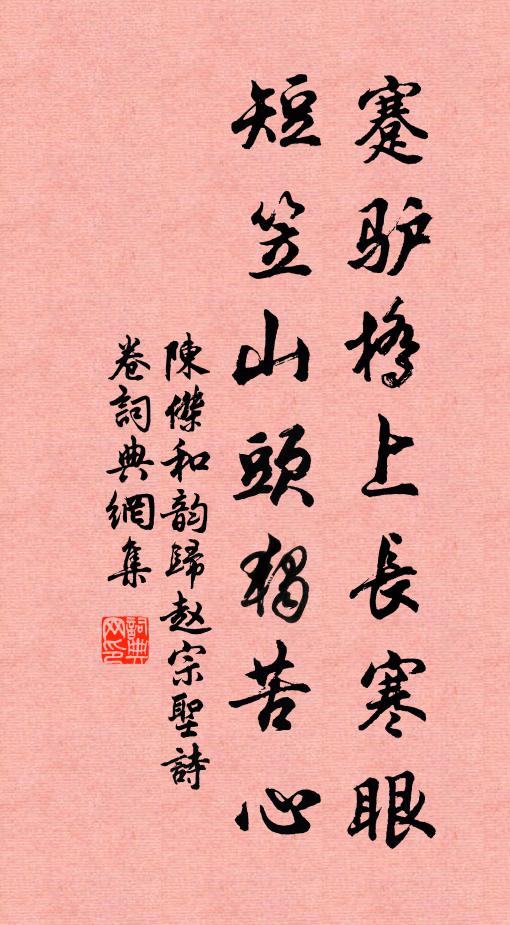 蹇驴橋上長寒眼
短笠山頭獨苦心
陳傑和韵歸赵宗聖詩
卷詞典網集
詞典網印